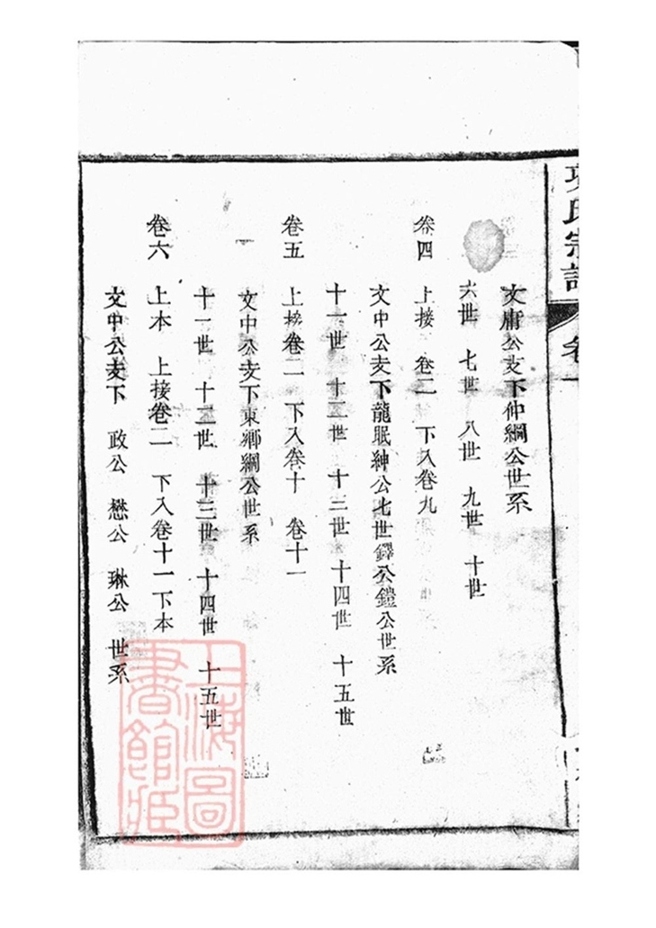 氏宗譜
卷一
文庸公支下仲綱公世系
六世 七世 八世 九世 十世
卷四 上接 卷二 下入卷九
文中公支下龍眠紳公七世鐸公鎧公世系
十一世 十二世 十三世 十四世 十五世
卷五 上接卷二 下入卷十 卷十一
文中公支下東鄉綱公世系
十一世 十二世 十三世 十四世 十五世
卷六 上本 上接卷二 下入卷十一下本
文中公支下 政公 懋公 琳公 世系
上海圖書館藏